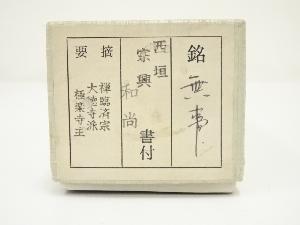 銘
無事
西垣
宗興
和尚
書付
摘要
禅臨済宗
大徳寺派
極楽寺主